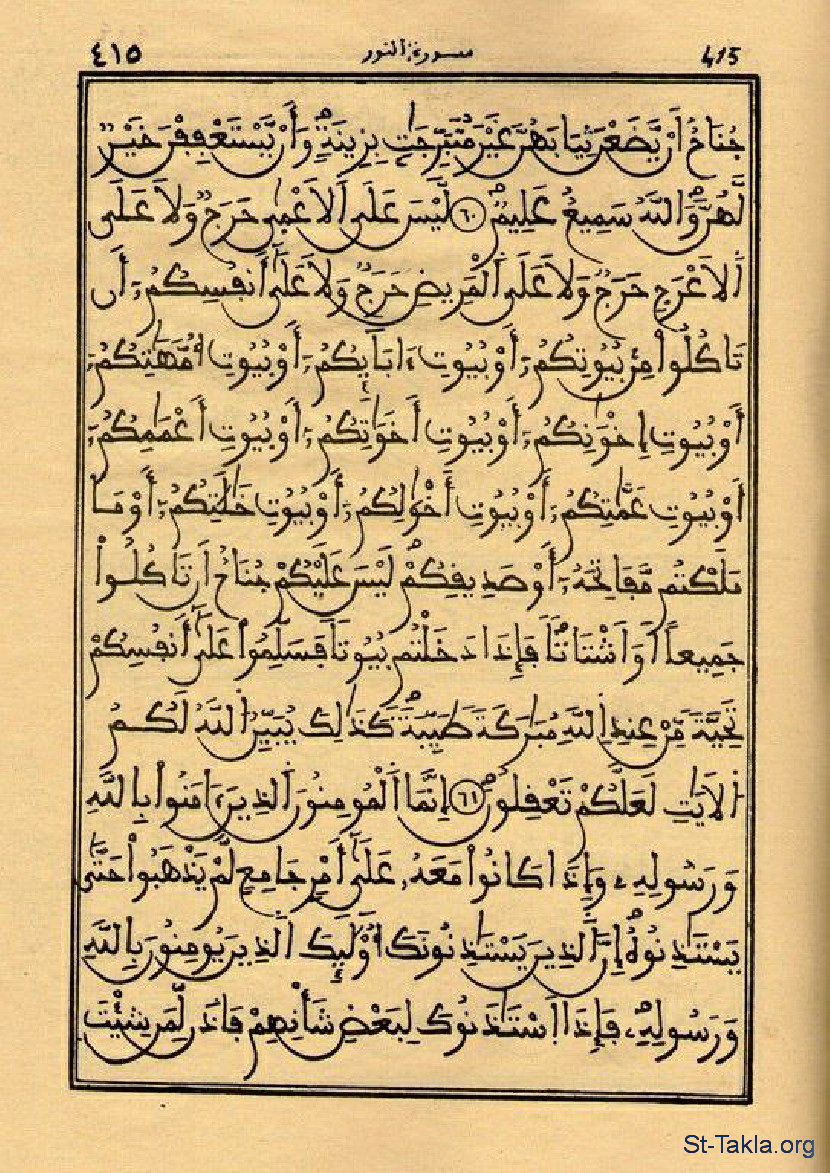 ٤١٥ سورة النور 415
جُنَاحٌ أَنْ يَّضَعْنَ ثِيَابَهُنَّ غَيْرَ مُتَبَرِّجَٰتِۭ بِزِينَةٍۖ وَأَنْ يَّسْتَعْفِفْنَ خَيْرٌ
لَّهُنَّۖ وَاللَّهُ سَمِيعٌ عَلِيمٌۖ ٦٠ لَّيْسَ عَلَى اَلَاعْمٰى حَرَجٌ وَلَا عَلَى
اَلَاعْرَجِ حَرَجٌ وَلَا عَلَى اَلْمَرِيضِ حَرَجٌ وَلَا عَلَىٰٓ أَنفُسِكُمُۥٓ أَن
تَاكُلُواْ مِنۢ بُيُوتِكُمُۥٓ أَوْ بُيُوتِ ءَابَآئِكُمُۥٓ أَوْ بُيُوتِ أُمَّهَٰتِكُمُۥٓ
أَوْ بُيُوتِ إِخْوَٰنِكُمُۥٓ أَوْ بُيُوتِ أَخَوَٰتِكُمُۥٓ أَوْ بُيُوتِ أَعْمَٰمِكُمُۥٓ
أَوْ بُيُوتِ عَمَّٰتِكُمُۥٓ أَوْ بُيُوتِ أَخْوَٰلِكُمُۥٓ أَوْ بُيُوتِ خَٰلَٰتِكُمُۥٓ أَوْ مَا
مَلَكْتُم مَّفَاتِحَهُۥٓ أَوْ صَدِيقِكُمْۖ لَيْسَ عَلَيْكُمْ جُنَاحٌ أَن تَاكُلُواْ
جَمِيعاً اَوَ اَشْتَاتاًۖ فَإِذَا دَخَلْتُم بُيُوتاً فَسَلِّمُواْ عَلَىٰٓ أَنفُسِكُمْ
تَحِيَّةً مِّنْ عِندِ اِللَّهِ مُبَٰرَكَةً طَيِّبَةًۖ كَذَٰلِكَ يُبَيِّنُ اُللَّهُ لَكُمُ
اُلَايَٰتِ لَعَلَّكُمْ تَعْقِلُونَۖ ٦١ إِنَّمَا اَلْمُومِنُونَ اَلذِينَ ءَامَنُواْ بِاللَّهِ
وَرَسُولِهِۦ وَإِذَا كَانُواْ مَعَهُۥ عَلَىٰٓ أَمْرٍ جَامِعٍ لَّمْ يَذْهَبُواْ حَتَّىٰ
يَسْتَٰذِنُوهُۖ إِنَّ اَلذِينَ يَسْتَٰذِنُونَكَ أُوْلَٰٓئِكَ اَلذِينَ يُومِنُونَ بِاللَّهِ
وَرَسُولِهِۦۖ فَإِذَا اَسْتَٰذَنُوكَ لِبَعْضِ شَأْنِهِمْ فَاذَن لِّمَن شِئْتَ
St-Takla.org